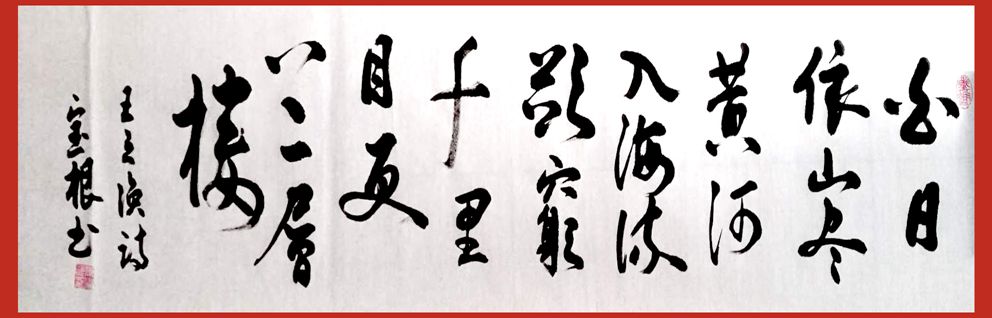 白日
依山尽
黄河
入海流
欲窮
千里
目更
上一層
楼
王之涣诗
根书